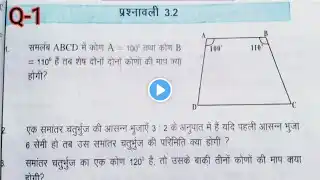 Q-1
प्रश्नावली 3.2
1. समलंब ABCD में कोण A = 100° तथा कोण B
= 110° है तब शेष दोनों दोनों कोणों की माप क्या
होगी?
A B
100° 110°
D C
2 एक समांतर चतुर्भुज की आसन्न भुजाएँ 3 : 2 के अनुपात में है यदि पहली आसन्न भुजा
6 सेमी हो तब उस समांतर चतुर्भुज की परिमिति क्या होगी ?
3. समांतर चतुर्भुज का एक कोण 120° है, तो उसके बाकी तीनों कोणों की माप क्या
होगी?